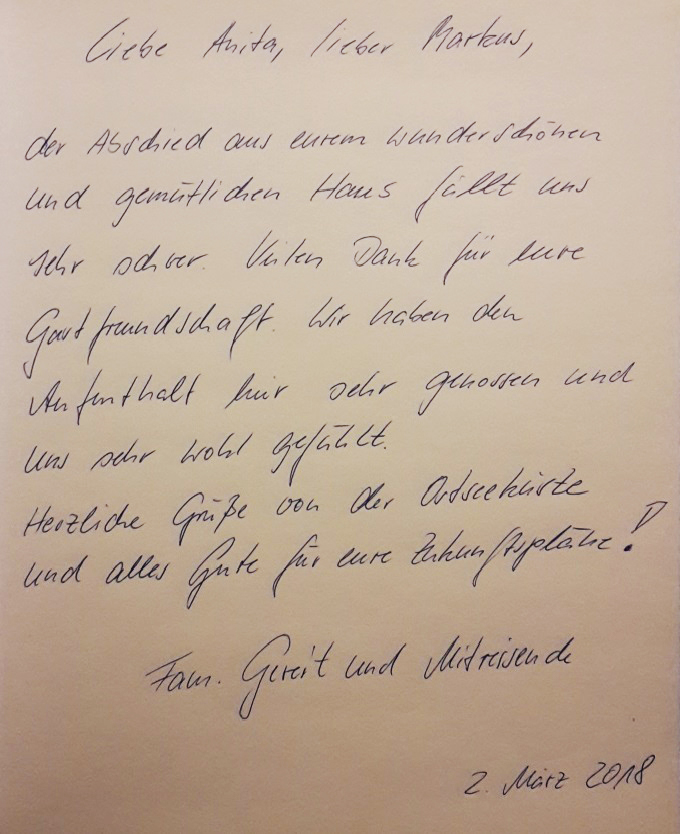 Liebe Anita, lieber Markus,
der Abschied aus eurem wunderschönen
und gemütlichen Haus fällt uns
sehr schwer. Vielen Dank für eure
Gastfreundschaft. Wir haben den
Aufenthalt hier sehr genossen und
uns sehr wohl gefühlt.
Herzliche Grüße von der Ostseeküste
und alles Gute für eure Zukunftspläne!
Fam. Gereit und Mitreisende
2. März 2018